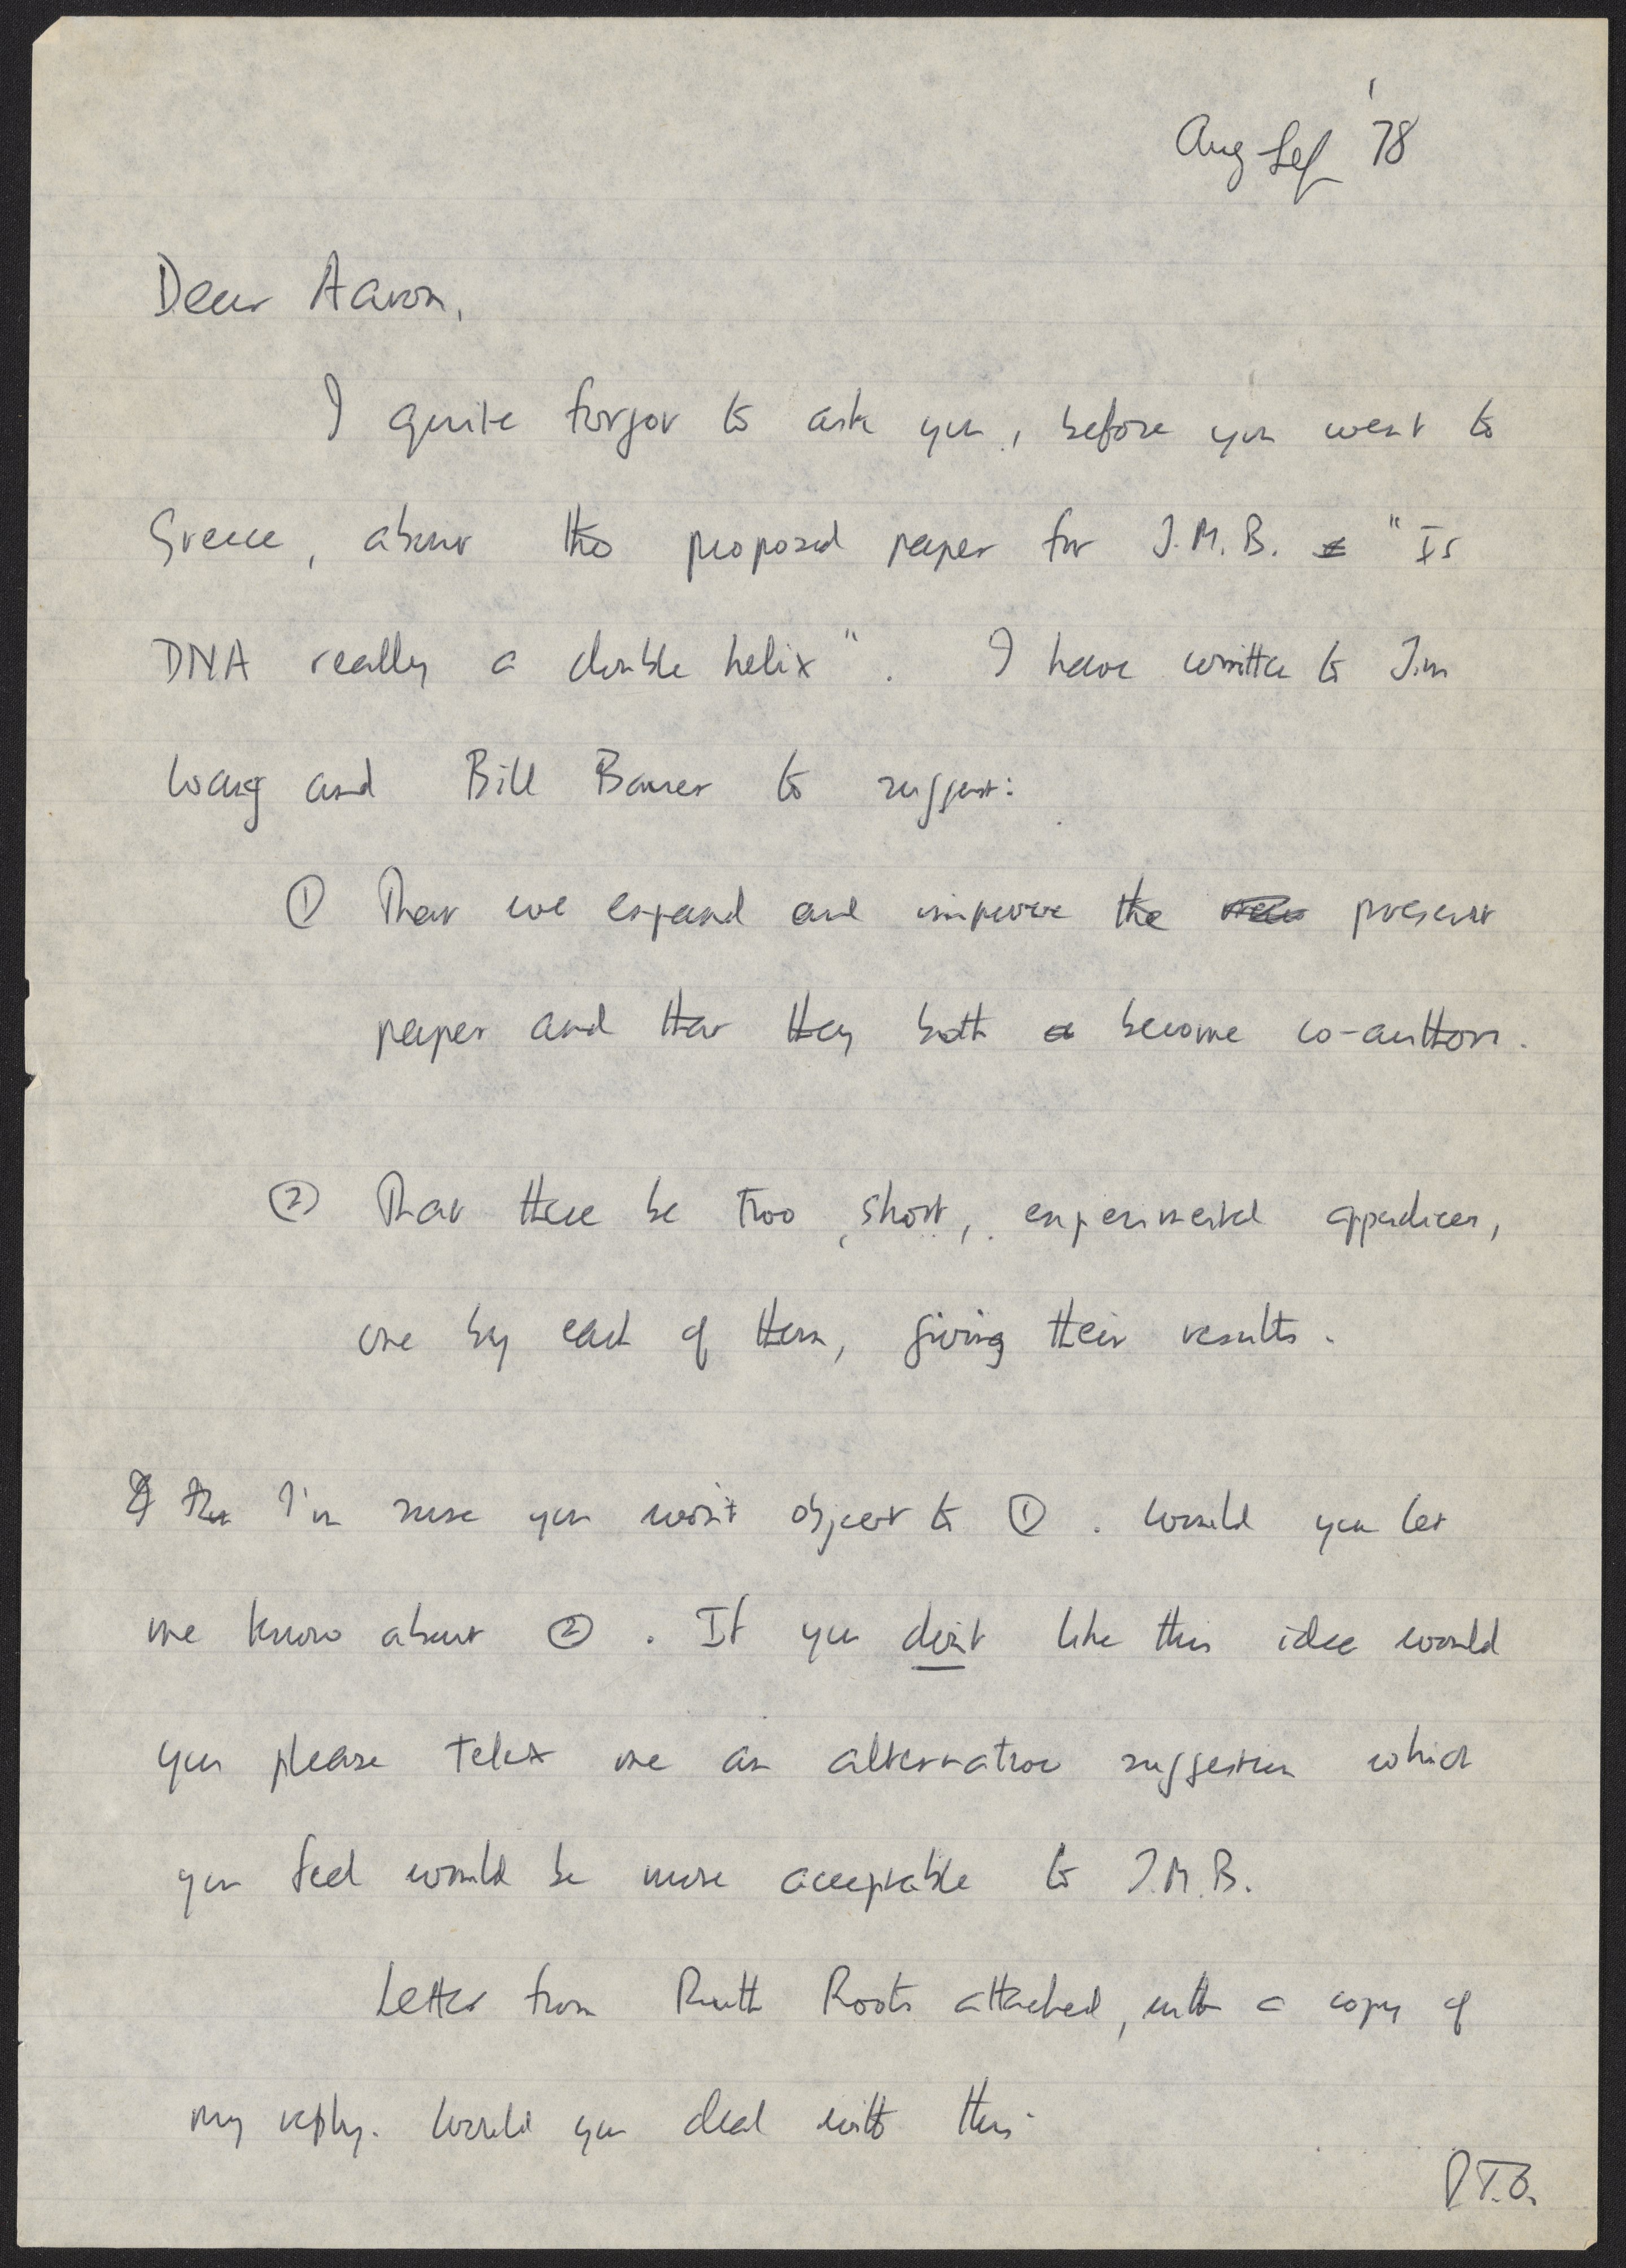 Aug Sep '78
Dear Aaron,
I quite forgot to ask you, before you went to
Greece, about the proposed paper for J.M.B. "Is
DNA really a double helix". I have written to Jim
Wang and Bill Bauer to suggest:
① That we expand and improve the present
paper and that they both become co-authors.
② That there be two, short, experimental appendices,
one by each of them, giving their results.
I'm sure you won't object to ①. Would you let
me know about ②. If you don't like this idea would
you please telex me an alternative suggestion which
you feel would be more acceptable to J.M.B.
Letter from Ruth Roots attached, with a copy of
my reply. Would you deal with this.
P.T.O.